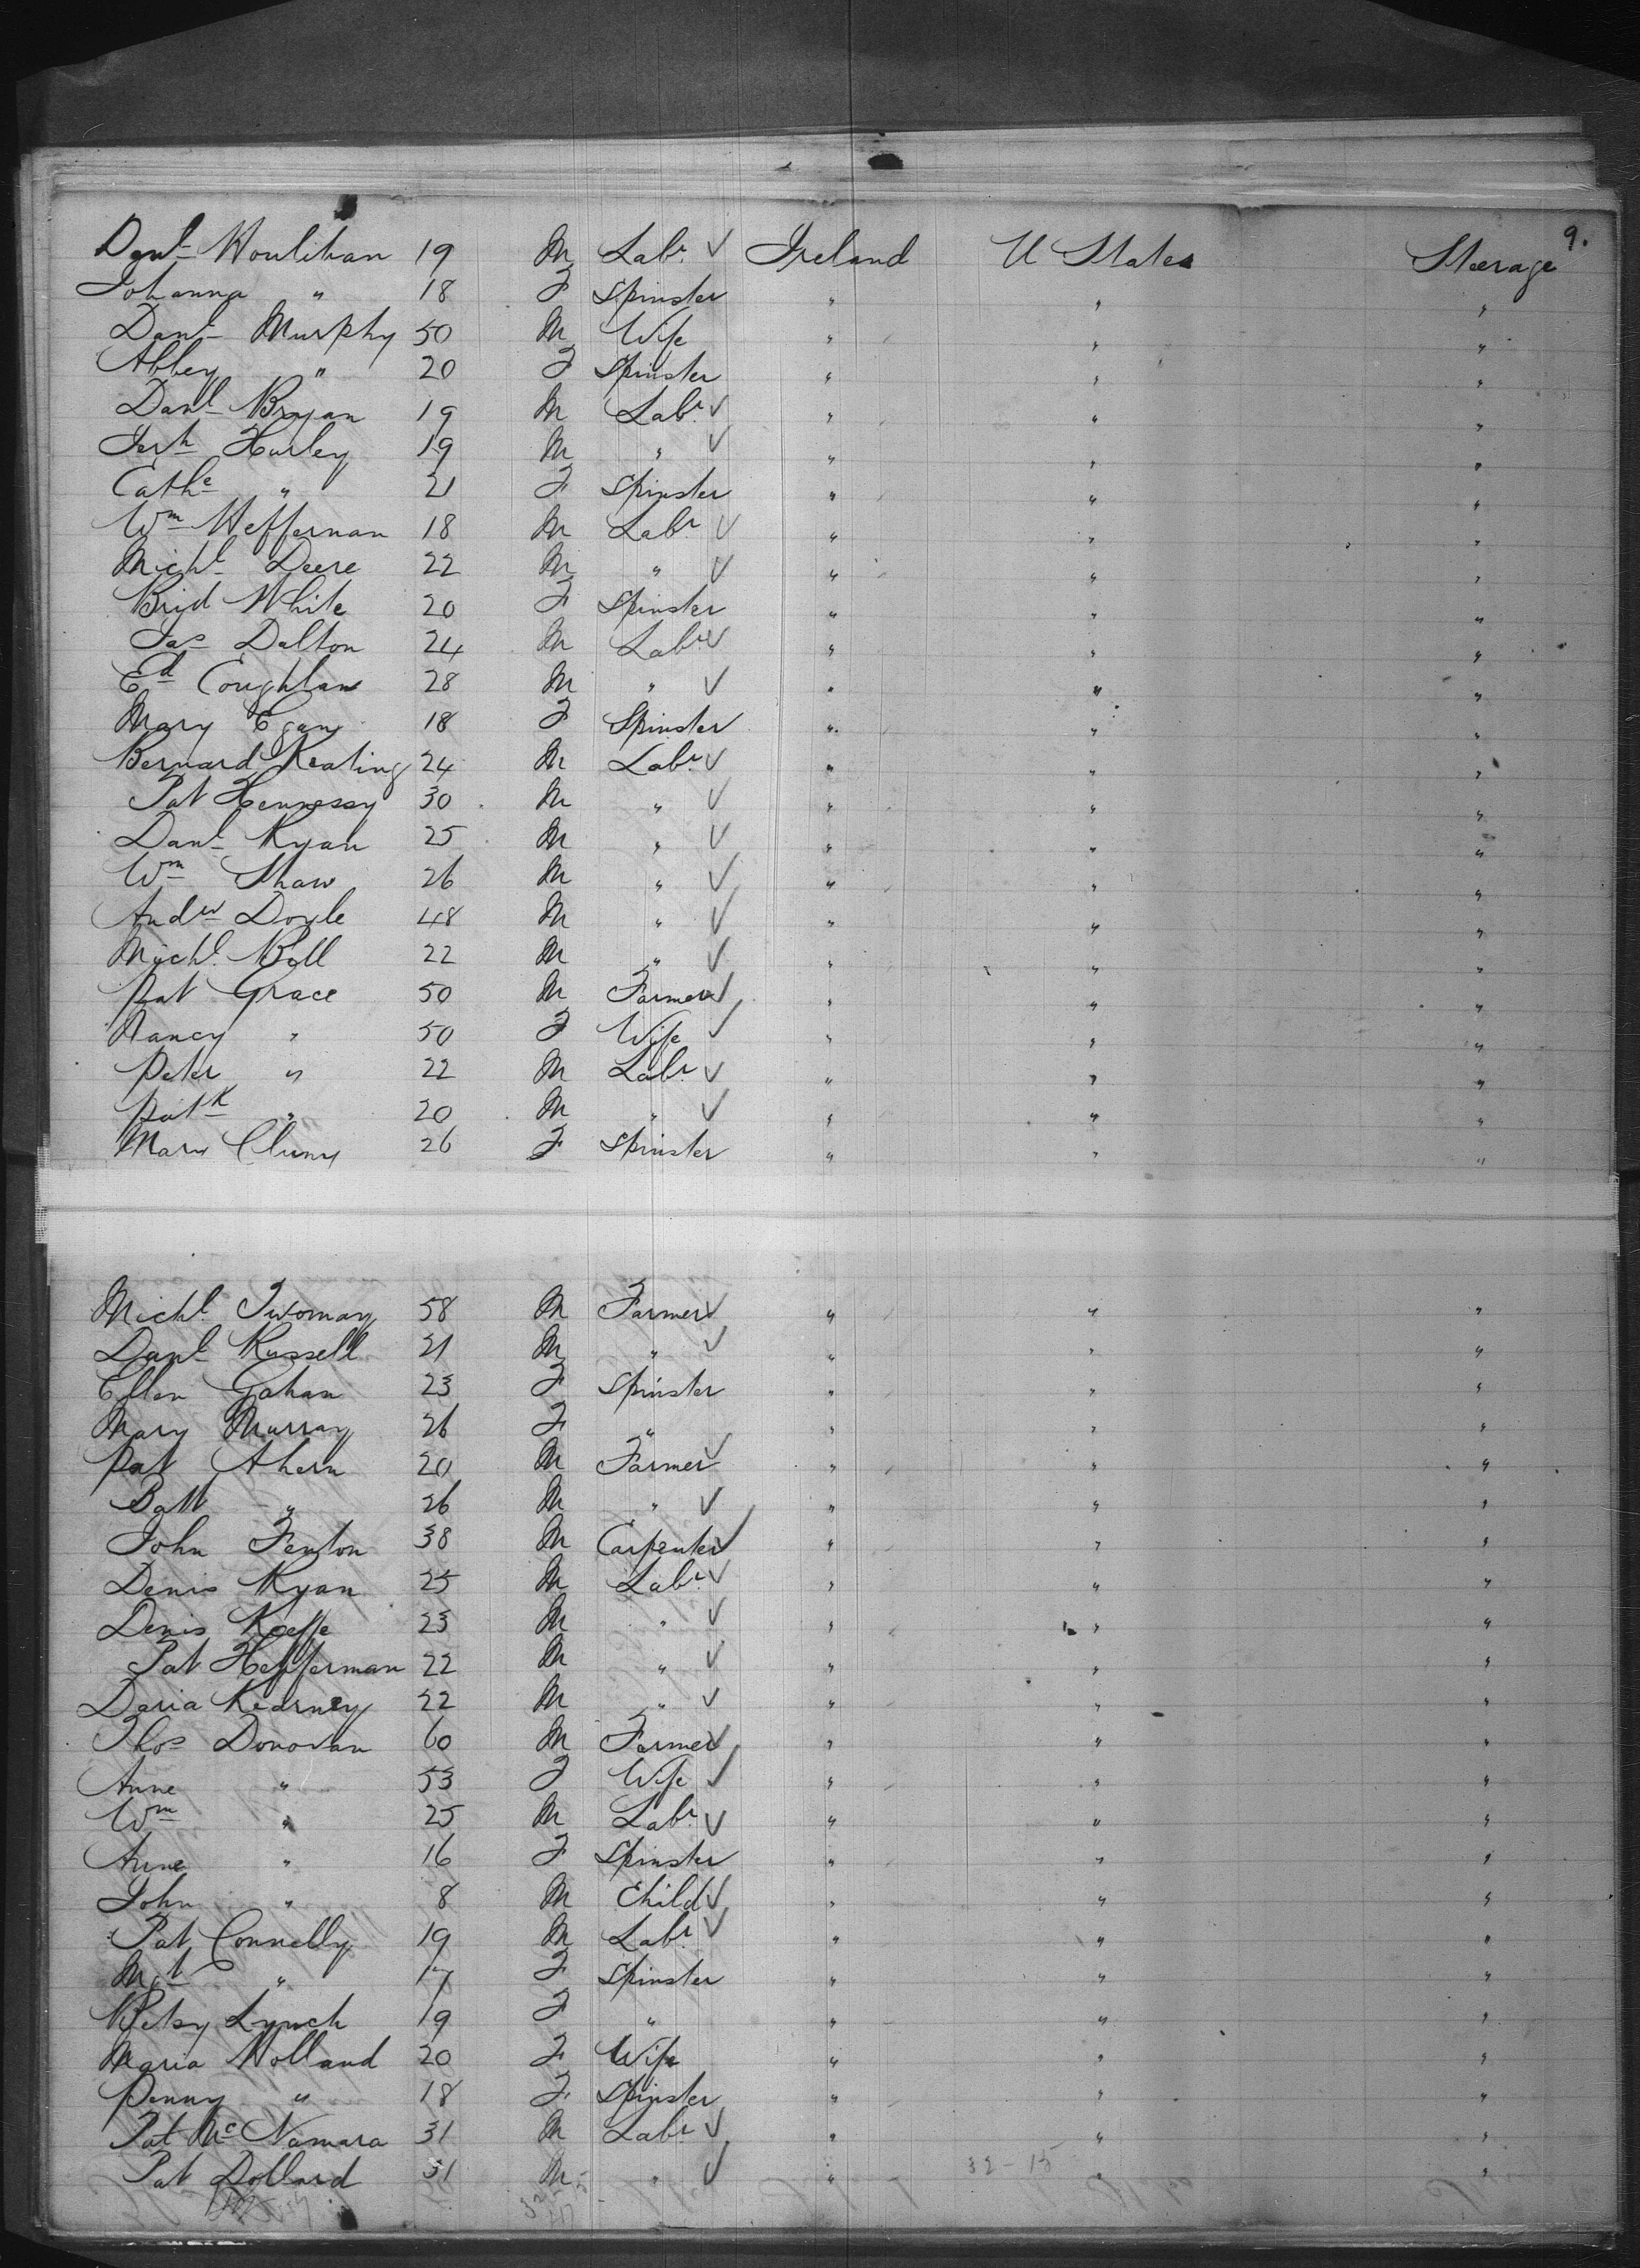 9.
Danl Houlihan 19 M Labr ✓ Ireland U States Steerage
Johanna " 18 F Spinster " " "
Danl Murphy 50 M Wife " " "
Abbey " 20 F Spinster " " "
Danl Bryan 19 M Labr ✓ " " "
Jerh Hurley 19 M " ✓ " " "
Cathe " 21 F Spinster " " "
Wm Heffernan 18 M Labr ✓ " " "
Michl Deere 22 M " ✓ " " "
Brid White 20 F Spinster " " "
Jas Dalton 24 M Labr ✓ " " "
Ed Coughlan 28 M " ✓ " " "
Mary Egan 18 F Spinster " " "
Bernard Keating 24 M Labr ✓ " " "
Pat Hennessy 30 M " ✓ " " "
Danl Ryan 25 M " ✓ " " "
Wm Shaw 26 M " ✓ " " "
Andw Doyle 48 M " ✓ " " "
Michl Boll 22 M " ✓ " " "
Pat Grace 50 M Farmer ✓ " " "
Nancy " 50 F Wife ✓ " " "
Peter " 22 M Labr ✓ " " "
Patk " 20 M " ✓ " " "
Mary Cluny 26 F Spinster " " "
Michl Twomay 58 M Farmer ✓ " " "
Danl Russell 21 M " ✓ " " "
Ellen Gahan 23 F Spinster " " "
Mary Murray 26 F " " " "
Pat Ahern 20 M Farmer ✓ " " "
Batt " 26 M " ✓ " " "
John Fenton 38 M Carpenter ✓ " " "
Denis Ryan 25 M Labr ✓ " " "
Denis Keeffe 23 M " ✓ " " "
Pat Hefferman 22 M " ✓ " " "
Daria Kearney 22 M " ✓ " " "
Thos Donovan 60 M Farmer ✓ " " "
Anne " 53 F Wife ✓ " " "
Wm " 25 M Labr ✓ " " "
Anne " 16 F Spinster " " "
John " 8 M Child ✓ " " "
Pat Connelly 19 M Labr ✓ " " "
Mgt " 17 F Spinster " " "
Betsy Lynch 19 F " " " "
Maria Holland 20 F Wife " " "
Penny " 18 F Spinster " " "
Pat McNamara 31 M Labr ✓ " " "
Pat Dollard 31 M " ✓ " " "
32-15